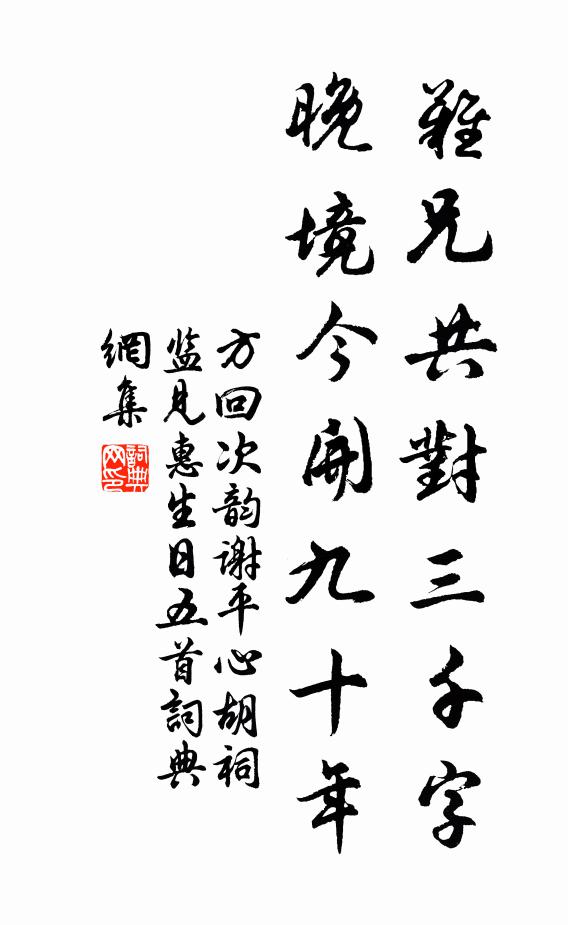 難兄共對三千字
晚境今開九十年
方回次韵谢平心胡祠
监見惠生日五首詞典
網集
詞典网印